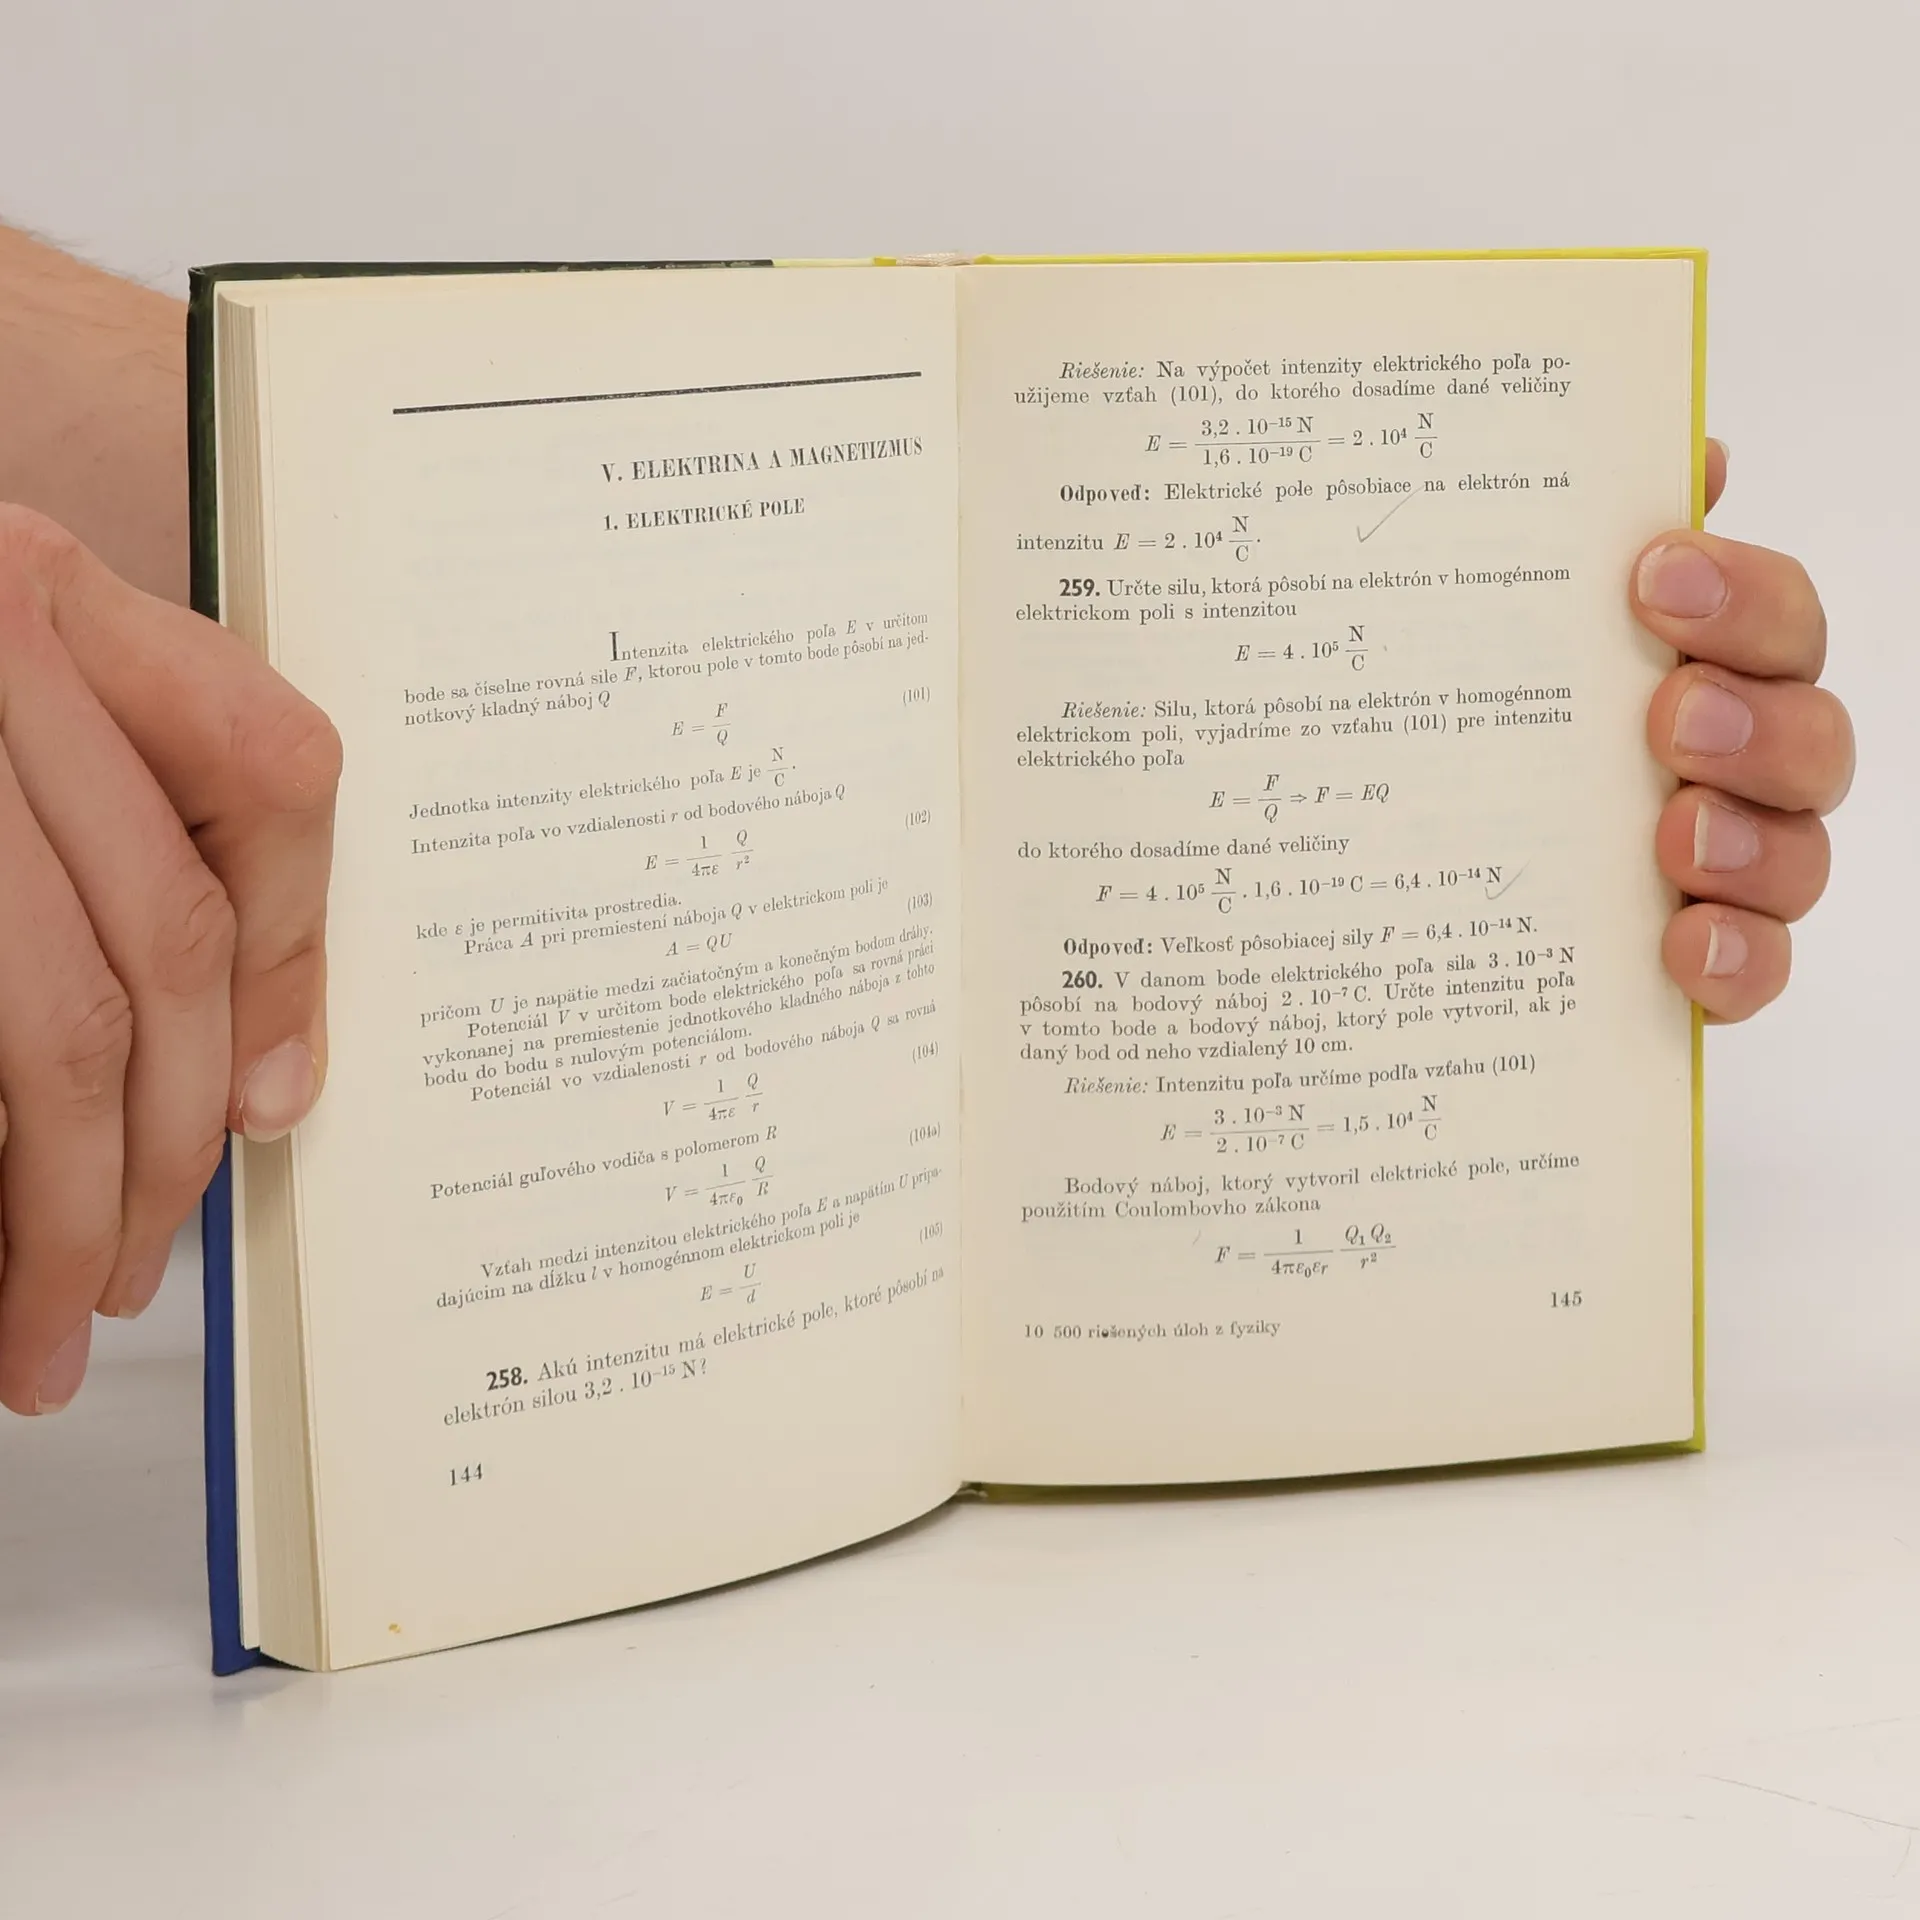 V. ELEKTRINA A MAGNETIZMUS
1. ELEKTRICKÉ POLE
Intenzita elektrického poľa E v určitom
bode sa číselne rovná sile F, ktorou pole v tomto bode pôsobí na jed-
notkový kladný náboj Q
E = F/Q (101)
Jednotka intenzity elektrického poľa E je N/C.
Intenzita poľa vo vzdialenosti r od bodového náboja Q
E = 1/4πε Q/r² (102)
kde ε je permitivita prostredia.
Práca A pri premiestení náboja Q v elektrickom poli je
A = QU (103)
pričom U je napätie medzi začiatočným a konečným bodom dráhy.
Potenciál V v určitom bode elektrického poľa sa rovná práci
vykonanej na premiestenie jednotkového kladného náboja z tohto
bodu do bodu s nulovým potenciálom.
Potenciál vo vzdialenosti r od bodového náboja Q sa rovná
V = 1/4πε Q/r (104)
Potenciál guľového vodiča s polomerom R
V = 1/4πε₀ Q/R (104a)
Vzťah medzi intenzitou elektrického poľa E a napätím U pripa-
dajúcim na dĺžku l v homogénnom elektrickom poli je
E = U/d (105)
258. Akú intenzitu má elektrické pole, ktoré pôsobí na
elektrón silou 3,2 . 10⁻¹⁵ N?
144
Riešenie: Na výpočet intenzity elektrického poľa po-
užijeme vzťah (101), do ktorého dosadíme dané veličiny
E = 3,2 . 10⁻¹⁵ N/1,6 . 10⁻¹⁹ C = 2 . 10⁴ N/C
Odpoveď: Elektrické pole pôsobiace na elektrón má
intenzitu E = 2 . 10⁴ N/C.
259. Určte silu, ktorá pôsobí na elektrón v homogénnom
elektrickom poli s intenzitou
E = 4 . 10⁵ N/C
Riešenie: Silu, ktorá pôsobí na elektrón v homogénnom
elektrickom poli, vyjadríme zo vzťahu (101) pre intenzitu
elektrického poľa
E = F/Q ⇒ F = EQ
do ktorého dosadíme dané veličiny
F = 4 . 10⁵ N/C . 1,6 . 10⁻¹⁹ C = 6,4 . 10⁻¹⁴ N
Odpoveď: Veľkosť pôsobiacej sily F = 6,4 . 10⁻¹⁴ N.
260. V danom bode elektrického poľa sila 3 . 10⁻³ N
pôsobí na bodový náboj 2 . 10⁻⁷ C. Určte intenzitu poľa
v tomto bode a bodový náboj, ktorý pole vytvoril, ak je
daný bod od neho vzdialený 10 cm.
Riešenie: Intenzitu poľa určíme podľa vzťahu (101)
E = 3 . 10⁻³ N/2 . 10⁻⁷ C = 1,5 . 10⁴ N/C
Bodový náboj, ktorý vytvoril elektrické pole, určíme
použitím Coulombovho zákona
F = 1/4πε₀εᵣ Q₁ Q₂/r²
145
10 500 riešených úloh z fyziky